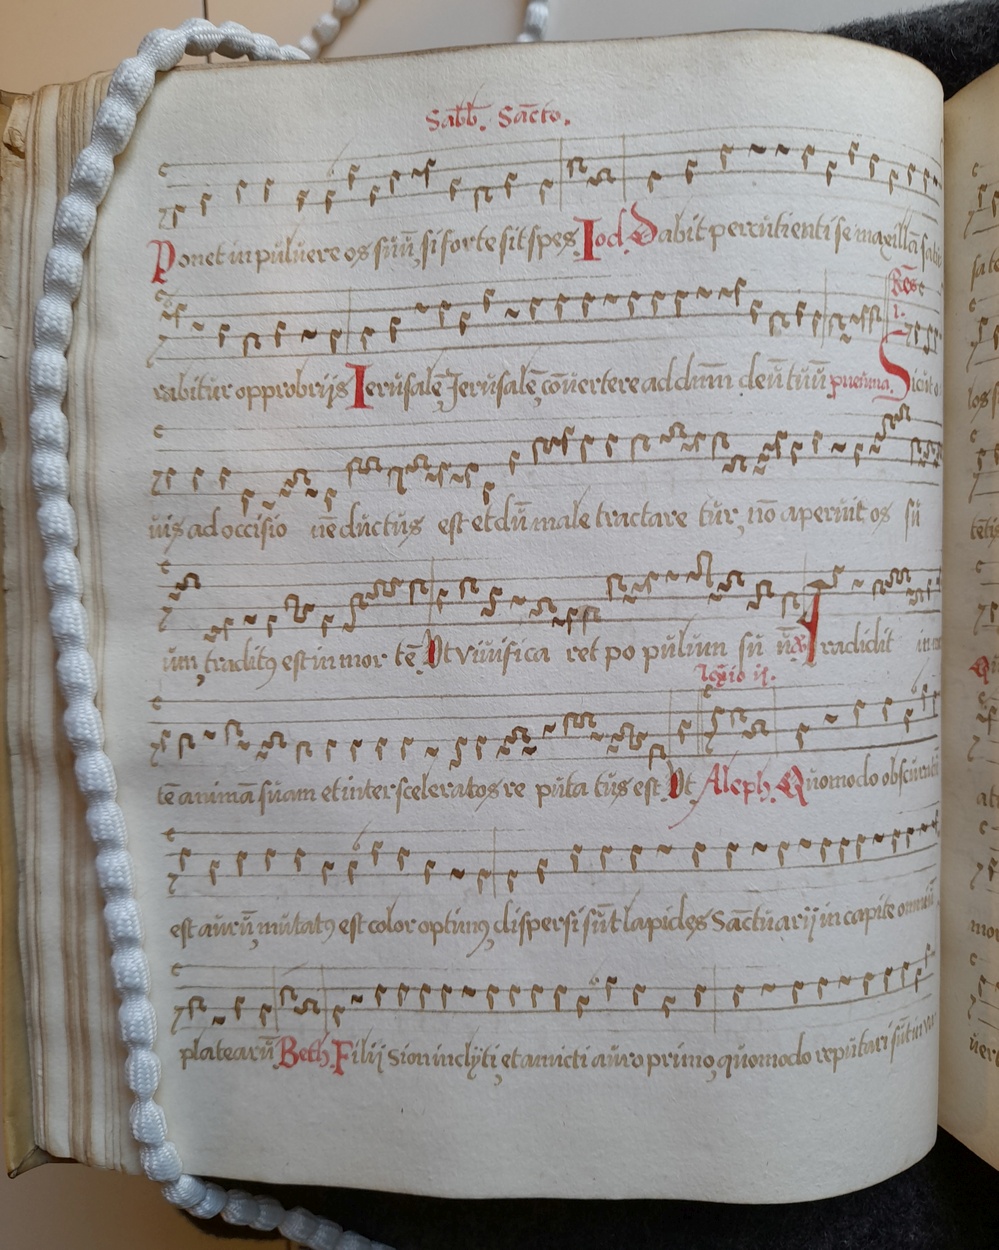 Sabb. Sācto.
Ponet in pulvere os suū, si forte sit spes Iod. Dabit percutienti se maxillā satu
Res.
i.
rabitur opprobrijs Ierusalē, Jerusalē, cōvertere ad dnm̄ deū tuū pneuma. Sicut o
vis ad occisio nē ductus est et dū male tractare tur, nō aperuit os su
um, traditꝰ est in mor tē Vt vivifica ret po pulum su ū Tradidit in
Lc̄io ij.
tē animā suam et inter sceleratos re puta tus est. Vt Aleph. Quomodo obscuratū
est aurū, mutatꝰ est color optimꝰ, dispersi sūt lapides Sāctuarij in capite omniū
platearū Beth. Filij Sion inclyti, et amicti auro primo, quomodo reputati sūt in va